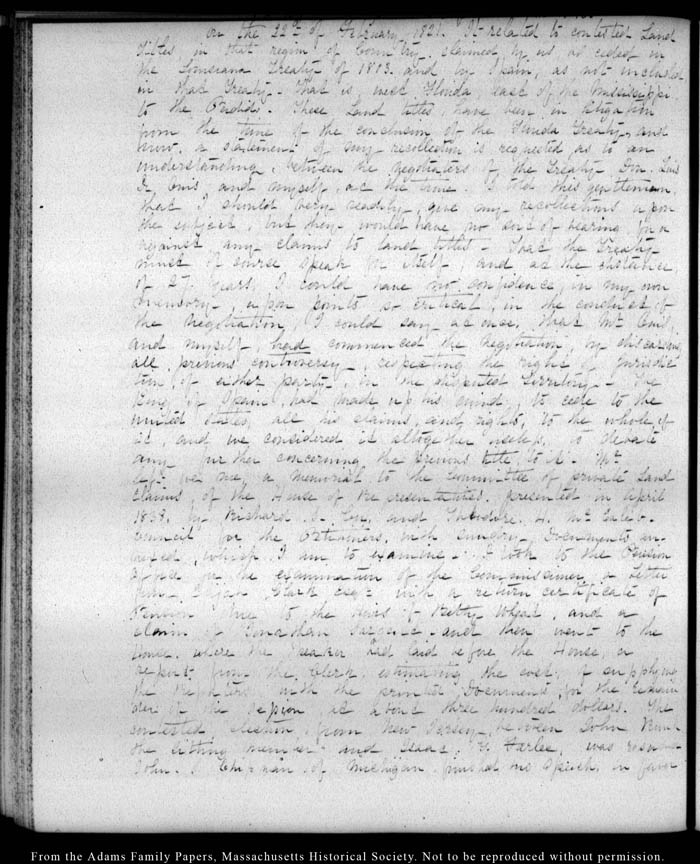 on the 22d of February 1821. It related to contested Land
titles, in that region of Country, claimed by us as ceded in
the Louisiana Treaty of 1803. and by Spain, as not included
in that Treaty - that is, West Florida, east of the Mississippi
to the Perdido. These Land titles, have been in litigation
from the time of the conclusion of the Florida Treaty, and
now, a statement of my recollection is requested as to an
understanding, between the negotiators of the Treaty Don Luis
de Onis, and myself, at the time. I told this gentleman
that I should very readily, give my recollections upon
the subject, but they would have no sort of bearing for or
against any claims to land titles - that the Treaty
must of course speak for itself, and, at the distance
of 27 years, I could have no confidence, in my own
memory, upon points so critical, in the conduct of
the negotiation, I could say at once, that Mr Onis,
and myself, had commenced the negotiation, by discarding
all, previous controversy, respecting the right of jurisdic
tion, of either party, in the disputed territory - The
King of Spain, had made up his mind, to cede to the
United States, all his claims, and rights, to the whole of
it, and we considered it altogether useless, to debate
any further concerning the previous title, to it. Mr
left me, a memorial to the Committee of private Land
Claims, of the House of Representatives, presented in April
1838. by Richard and Theodore H. McCaleb.
Council for the with sundry Documents an
nexed, which I am to examine. I took to the Pension
Office for the examination of the Commissioner, a Letter
from Clark Esqr with a return certificate of
Pension due to the heirs of Betty and a
claim of Jonathan and then went to the
house, where the Speaker had laid before the House, a
report from the Clerk estimating the cost, of supplying
the Reporters, with the printed Documents, for the remain
der of the Session, at about three hundred dollars. The
contested election, from New Jersey, between John
the sitting member and Isaac G. Farlee, was resumed
John S. Chipman of Michigan finished his speech, in favor
From the Adams Family Papers, Massachusetts Historical Society. Not to be reproduced without permission.